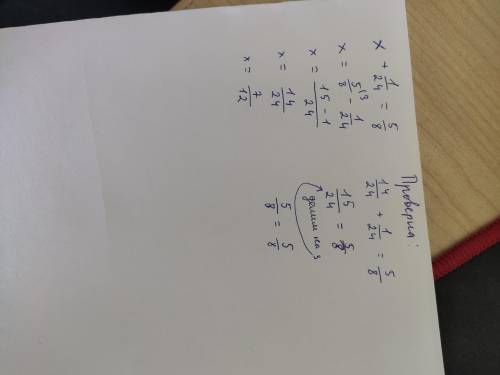 x + 1/24 = 5/8
x = 5/8 |3 - 1/24
x = (15 - 1)/24
x = 14/24
x = 7/12
Проверка:
14/24 + 1/24 = 5/8
15/24 = 5/8
делим на 3
5/8 = 5/8